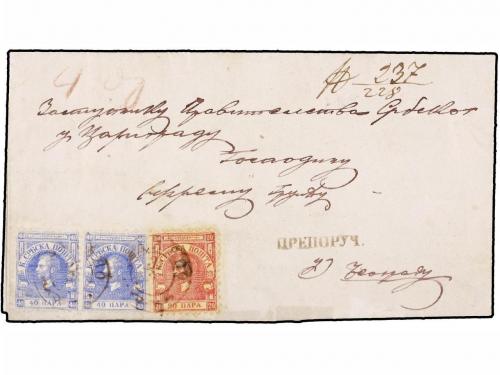 № 237
228
Заступнику Правителства Србског
у Цариграду
Господину
ПРЕПОРУЧ.
у Београду
К. СРПСКА ПОШТА
40 ПАРА
К. СРПСКА ПОШТА
40 ПАРА
К. СРПСКА ПОШТА
20 ПАРА